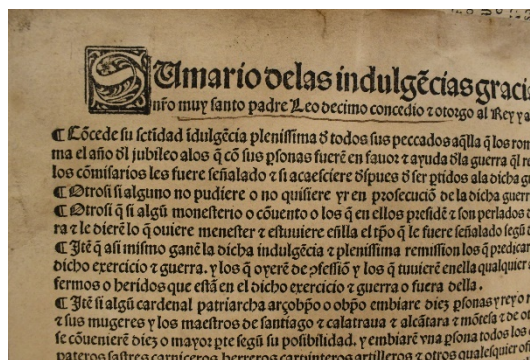 SUmario delas indulgẽcias gracia
nr̃o muy santo padre Leo decimo concedio ⁊ otorgo al Rey y a
¶ Cõcede su sctidad ĩdulgẽcia plenissima đ todos sus peccados aq̃lla q̃ los rom
ma el año đl jubileo alos q̃ cõ sus p̱sonas fuerẽ en fauor ⁊ ayuda đla guerra q̃l re
los cõmisarios les fuere señalado ⁊ si acaesciere đspues đ ser p̱tidos ala dicha gu
¶ Otrosi si alguno no pudiere o no quisiere yr en prosecuciõ de la dicha guerr
¶ Otrosi q̃ si algũ monesterio o cõuento o los q̃ en ellos presidẽ ⁊ son perlados đ
ra ⁊ le dierẽ lo q̃ ouiere menester ⁊ estuuiere eñlla el tp̃o q̃ le fuere señalado segũ đ
¶ Itẽ q̃ asi mismo ganẽ la dicha indulgẽcia ⁊ plenissima remission los q̃ predicar
dicho exercicio ⁊ guerra. y los q̃ oyerẽ đ p̱fessiõ y los q̃ tuuierẽ enella qualquier
fermos o heridos que estã en el dicho exercicio ⁊ guerra o fuera della.
¶ Itẽ si algũ cardenal patriarcha arçobp̃o o obp̃o embiare diez p̱sonas y rey o
⁊ sus mugeres y los maestros de santiago ⁊ calatraua ⁊ alcãtara ⁊ mõtesa ⁊ de ot
se cõuenierẽ diez o mayor p̱te segũ su posibilidad. y embiarẽ vna p̱sona todos los
pateros sastres carniceros herreros carpinteros artilleros ⁊ otros qualesquier